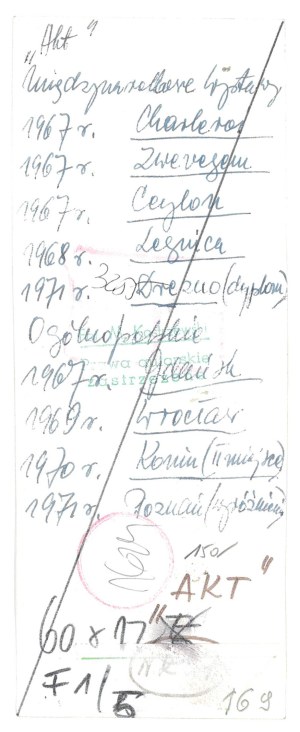 "Akt"
Międzynarodowe wystawy
1967 r. Charleroi
1967 r. Zwevegem
1967 r. Ceylon
1968 r. Legnica
1971 r. Drezno (dyplom)
Ogólnopolskie
1967 r. Gdańsk
1969 r. Wrocław
1970 r. Konin (II miejsce)
1971 r. Poznań (wyróżnienie)
prawa autorskie
zastrzeżone
150
"AKT"
60 x 17
F1/5
169